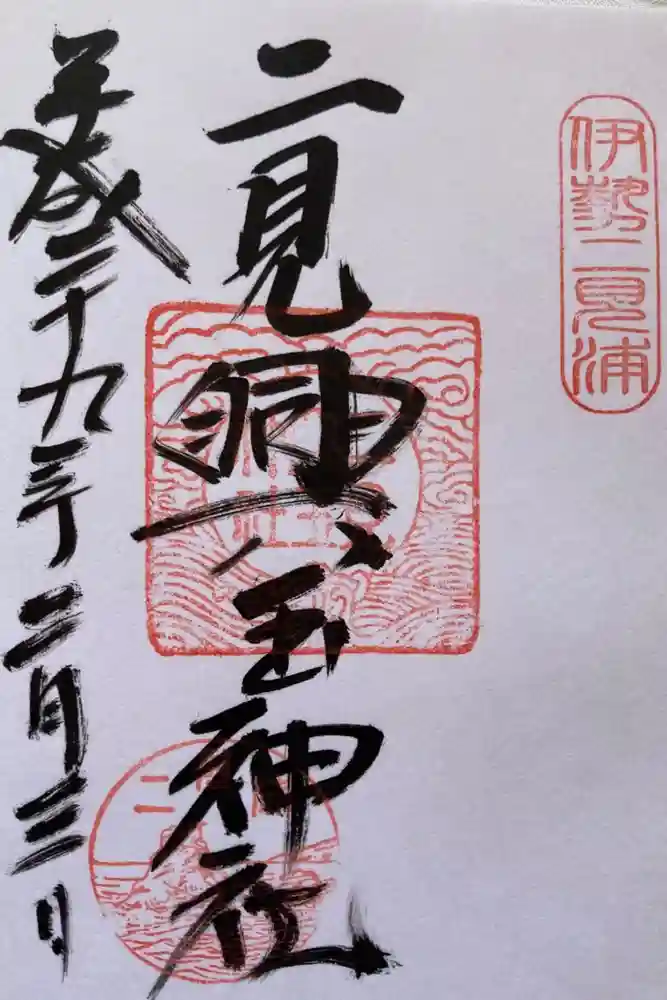 伊勢二見浦
二見興玉神社
平成二十九年二月三日